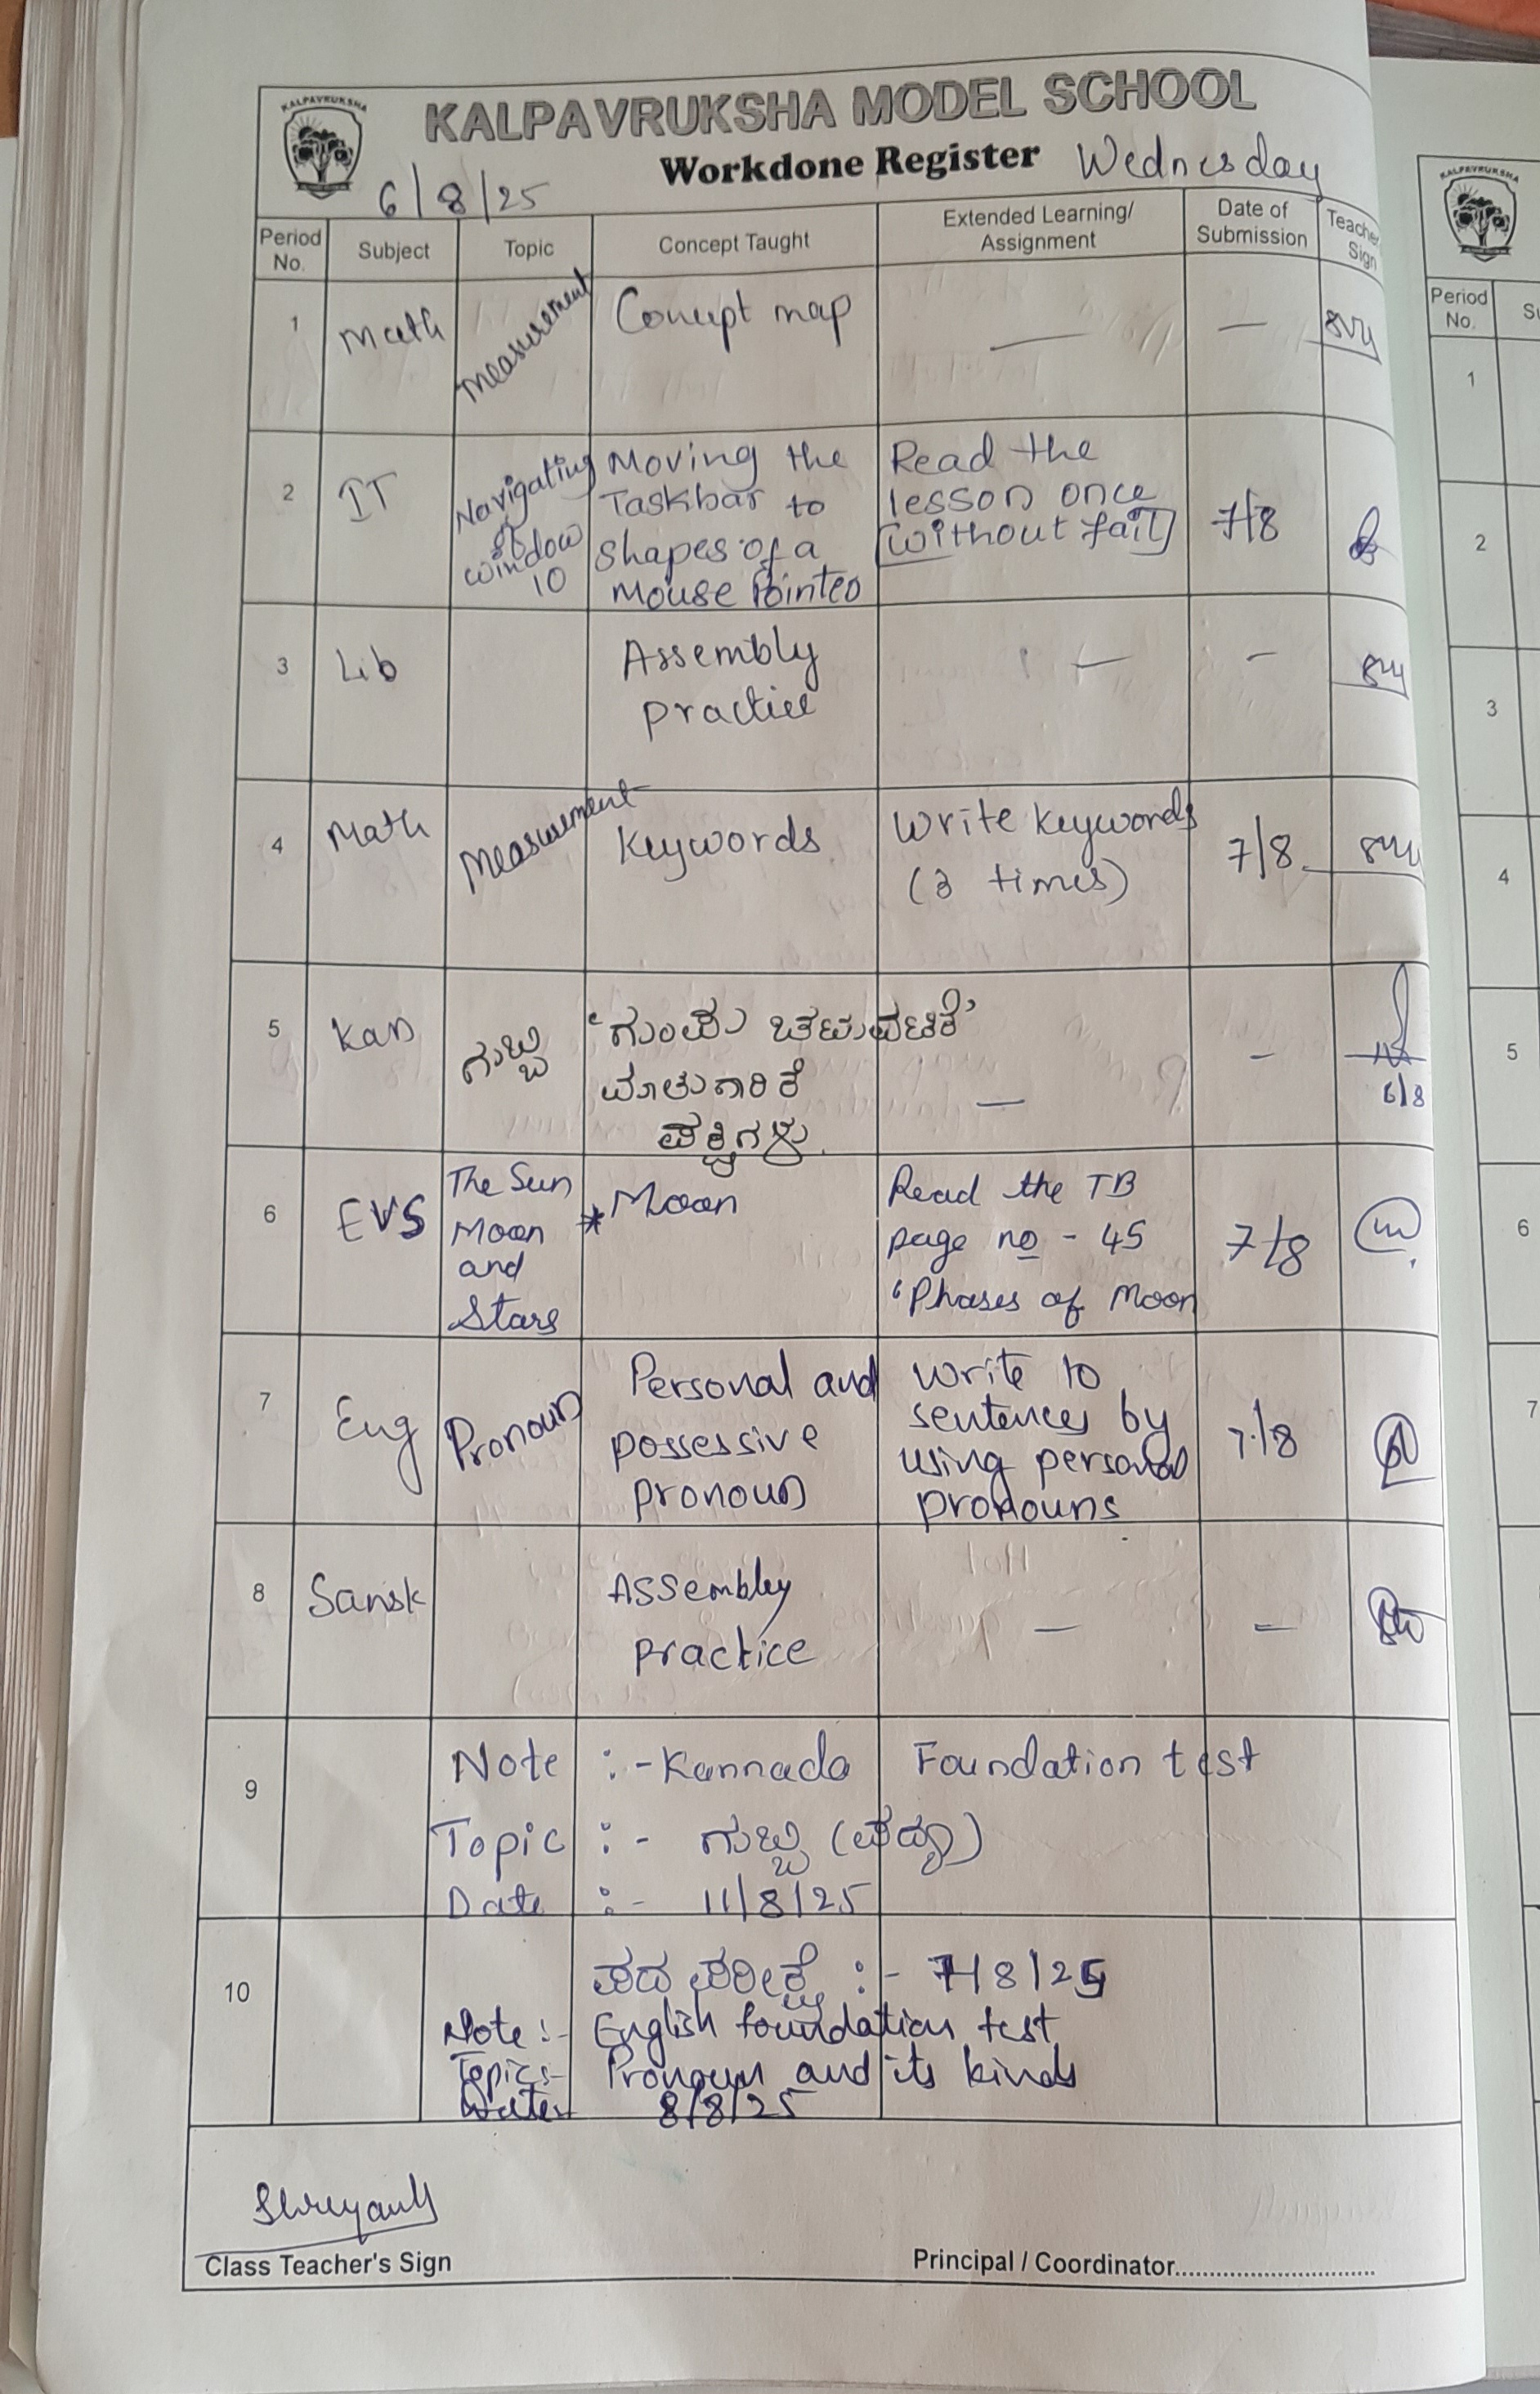 KALPAVRUKSHA
KALPAVRUKSHA MODEL SCHOOL
Workdone Register Wednesday
6/8/25
Period No. Subject Topic Concept Taught Extended Learning/ Assignment Date of Submission Teacher Sign
1 Math Measurement Concept map — —
2 IT Navigating of window 10 Moving the Taskbar to shapes of a Mouse Pointeo Read the lesson once without fail 7/8
3 Lib Assembly practice — —
4 Math Measurement Keywords Write keywords (3 times) 7/8
5 Kan ಗುಬ್ಬಿ ‘ಗುಂಪು ಚಟುವಟಿಕೆ’ ಮಾತುಗಾರಿಕೆ ಪಕ್ಷಿಗಳು. — — 6/8
6 EVS The Sun Moon and Stars * Moon Read the TB page no - 45 ‘Phases of Moon 7/8
7 Eng Pronoun Personal and possessive pronoun Write 10 sentences by using personal pronouns 7/8
8 Sansk Assembly practice — —
9 Note :- Kannada Foundation test
Topic :- ಗುಬ್ಬಿ (ಪದ್ಯ)
Date :- 11/8/25
10 ಪದ ಪರೀಕ್ಷೆ :- 7/8/25
Note :- English foundation test
Topic:- Pronoun and its kinds
Date:- 8/8/25
Class Teacher's Sign Principal / Coordinator
KALPAVRUKSHA
Period No.
1
2
3
4
5
6
7